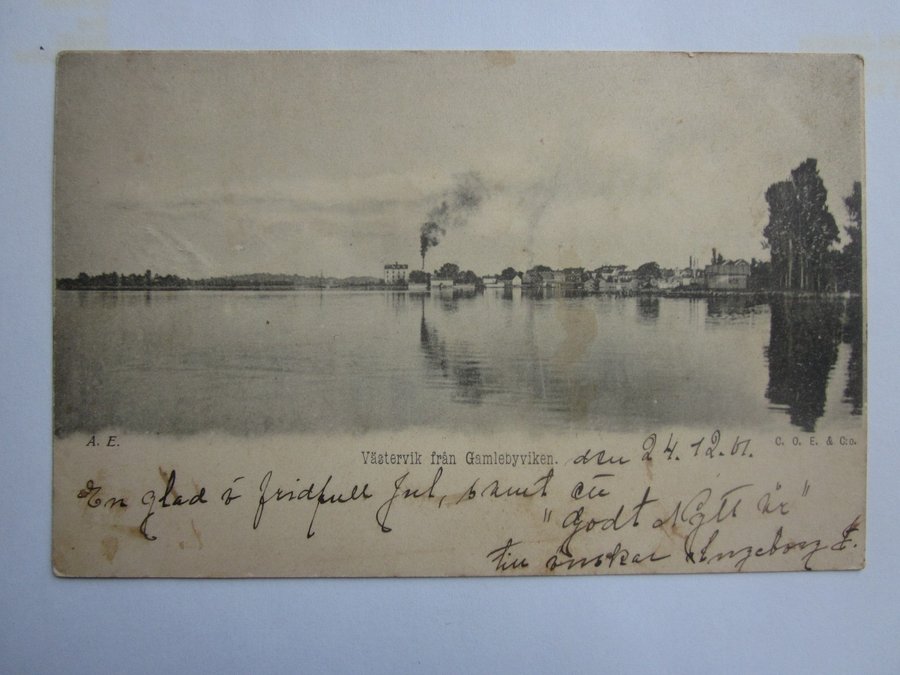 A. E.
Västervik från Gamlebyviken. den 24.12.01.
C. O. E. & C:o.
En glad o fridfull Jul, samt ett
"Godt Nytt år"
till önskar Ingeborg F.